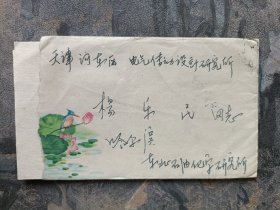 天津 河东区 电气传动设计研究所
杨乐民 同志
哈尔滨
东北石油化学研究所